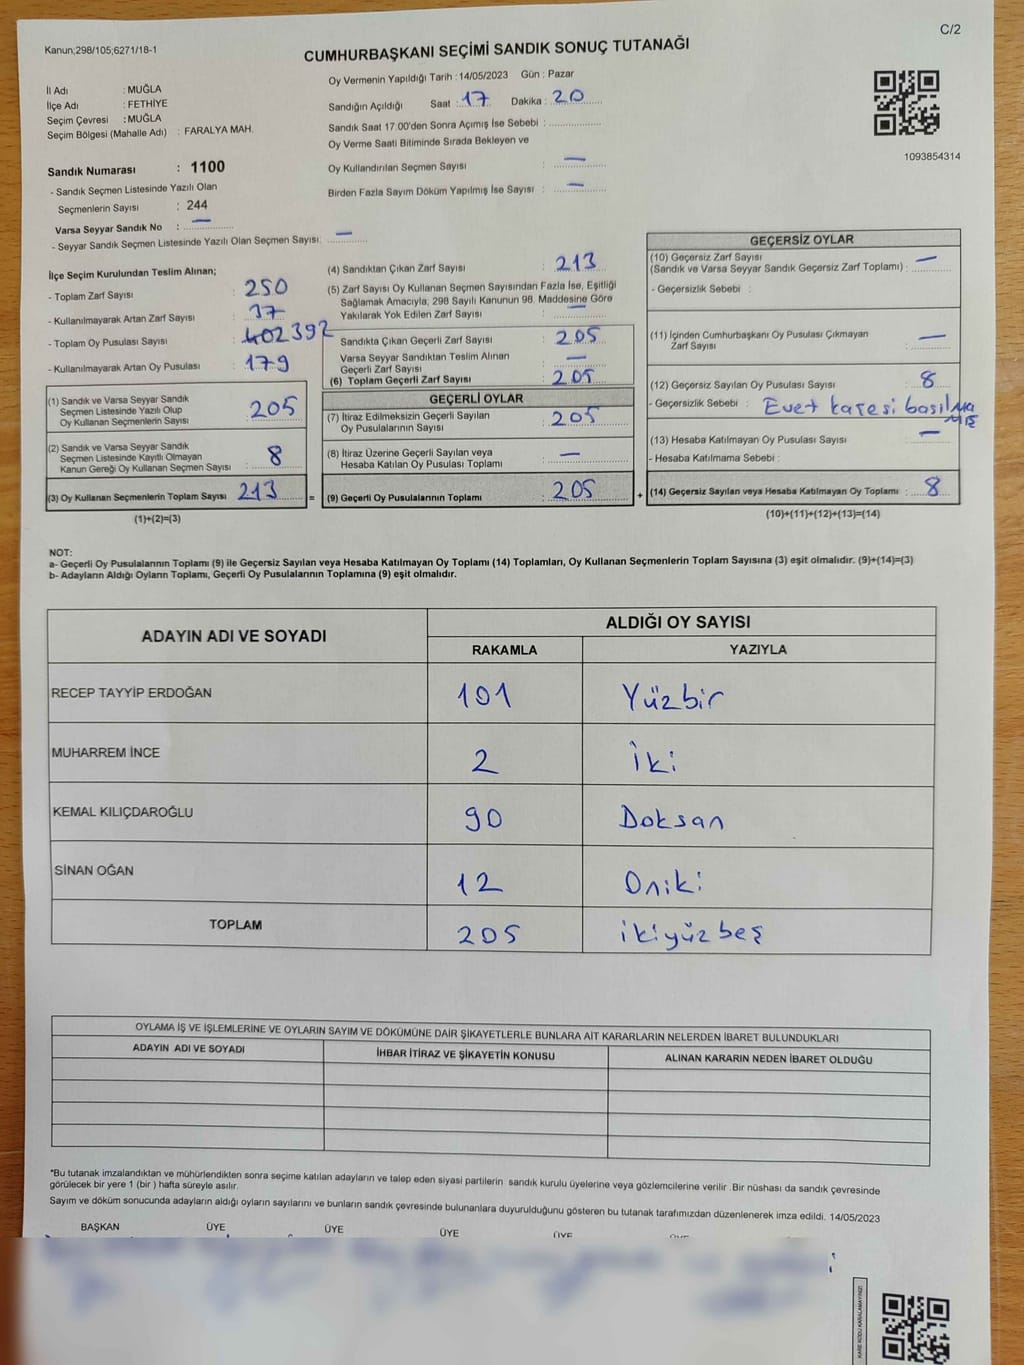 Kanun;298/105;6271/18-1
C/2
CUMHURBAŞKANI SEÇİMİ SANDIK SONUÇ TUTANAĞI
İl Adı : MUĞLA
İlçe Adı : FETHİYE
Seçim Çevresi : MUĞLA
Seçim Bölgesi (Mahalle Adı) : FARALYA MAH.
Sandık Numarası : 1100
- Sandık Seçmen Listesinde Yazılı Olan
Seçmenlerin Sayısı : 244
Varsa Seyyar Sandık No : —
- Seyyar Sandık Seçmen Listesinde Yazılı Olan Seçmen Sayısı: —
Oy Vermenin Yapıldığı Tarih : 14/05/2023 Gün : Pazar
Sandığın Açıldığı Saat : 17 Dakika : 20
Sandık Saat 17:00'den Sonra Açımış İse Sebebi :
Oy Verme Saati Bitiminde Sırada Bekleyen ve
Oy Kullandırılan Seçmen Sayısı : —
Birden Fazla Sayım Döküm Yapılmış İse Sayısı : —
1093854314
İlçe Seçim Kurulundan Teslim Alınan;
- Toplam Zarf Sayısı : 250
- Kullanılmayarak Artan Zarf Sayısı : 37
- Toplam Oy Pusulası Sayısı : 402 392
- Kullanılmayarak Artan Oy Pusulası : 179
(1) Sandık ve Varsa Seyyar Sandık
Seçmen Listesinde Yazılı Olup
Oy Kullanan Seçmenlerin Sayısı : 205
(2) Sandık ve Varsa Seyyar Sandık
Seçmen Listesinde Kayıtlı Olmayan
Kanun Gereği Oy Kullanan Seçmen Sayısı : 8
(3) Oy Kullanan Seçmenlerin Toplam Sayısı : 213
(1)+(2)=(3)
(4) Sandıktan Çıkan Zarf Sayısı : 213
(5) Zarf Sayısı Oy Kullanan Seçmen Sayısından Fazla İse, Eşitliği
Sağlamak Amacıyla, 298 Sayılı Kanunun 98. Maddesine Göre
Yakılarak Yok Edilen Zarf Sayısı : —
Sandıkta Çıkan Geçerli Zarf Sayısı : 205
Varsa Seyyar Sandıktan Teslim Alınan
Geçerli Zarf Sayısı : —
(6) Toplam Geçerli Zarf Sayısı : 205
GEÇERLİ OYLAR
(7) İtiraz Edilmeksizin Geçerli Sayılan
Oy Pusulalarının Sayısı : 205
(8) İtiraz Üzerine Geçerli Sayılan veya
Hesaba Katılan Oy Pusulası Toplamı : —
= (9) Geçerli Oy Pusulalarının Toplamı : 205 +
GEÇERSİZ OYLAR
(10) Geçersiz Zarf Sayısı
(Sandık ve Varsa Seyyar Sandık Geçersiz Zarf Toplamı) : —
- Geçersizlik Sebebi :
(11) İçinden Cumhurbaşkanı Oy Pusulası Çıkmayan
Zarf Sayısı : —
(12) Geçersiz Sayılan Oy Pusulası Sayısı : 8
- Geçersizlik Sebebi : Evet karesi basılma
mış
(13) Hesaba Katılmayan Oy Pusulası Sayısı : —
- Hesaba Katılmama Sebebi :
(14) Geçersiz Sayılan veya Hesaba Katılmayan Oy Toplamı : 8
(10)+(11)+(12)+(13)=(14)
NOT:
a- Geçerli Oy Pusulalarının Toplamı (9) ile Geçersiz Sayılan veya Hesaba Katılmayan Oy Toplamı (14) Toplamları, Oy Kullanan Seçmenlerin Toplam Sayısına (3) eşit olmalıdır. (9)+(14)=(3)
b- Adayların Aldığı Oyların Toplamı, Geçerli Oy Pusulalarının Toplamına (9) eşit olmalıdır.
ADAYIN ADI VE SOYADI
ALDIĞI OY SAYISI
RAKAMLA YAZIYLA
RECEP TAYYİP ERDOĞAN 101 Yüzbir
MUHARREM İNCE 2 İki
KEMAL KILIÇDAROĞLU 90 Doksan
SİNAN OĞAN 12 Oniki
TOPLAM 205 ikiyüzbeş
OYLAMA İŞ VE İŞLEMLERİNE VE OYLARIN SAYIM VE DÖKÜMÜNE DAİR ŞİKAYETLERLE BUNLARA AİT KARARLARIN NELERDEN İBARET BULUNDUKLARI
ADAYIN ADI VE SOYADI İHBAR İTİRAZ VE ŞİKAYETİN KONUSU ALINAN KARARIN NEDEN İBARET OLDUĞU
*Bu tutanak imzalandıktan ve mühürlendikten sonra seçime katılan adayların ve talep eden siyasi partilerin sandık kurulu üyelerine veya gözlemcilerine verilir .Bir nüshası da sandık çevresinde
görülecek bir yere 1 (bir ) hafta süreyle asılır.
Sayım ve döküm sonucunda adayların aldığı oyların sayılarını ve bunların sandık çevresinde bulunanlara duyurulduğunu gösteren bu tutanak tarafımızdan düzenlenerek imza edildi. 14/05/2023
BAŞKAN ÜYE ÜYE ÜYE ÜYE ÜYE
KARE KODU KARALAMAYINIZ!